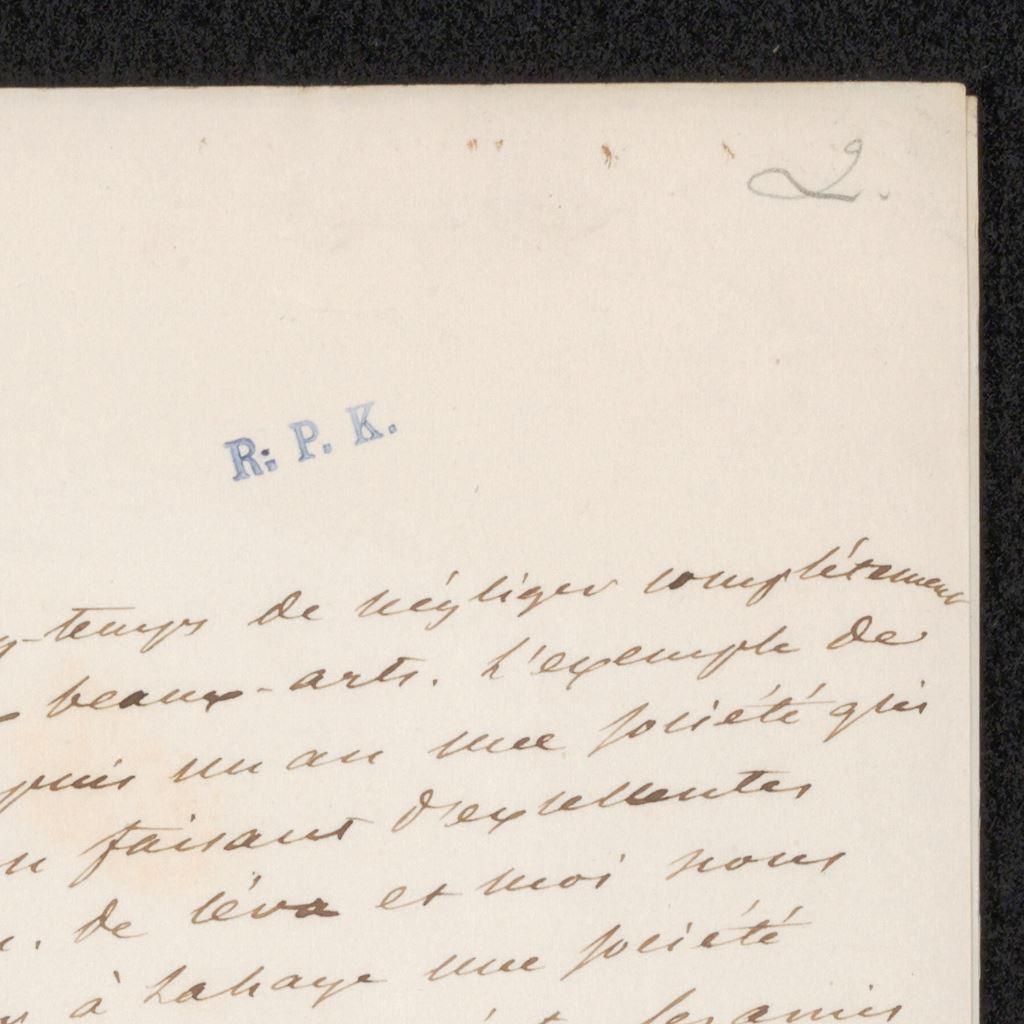 2.
R. P. K.
temps de négliger complètement
beaux-arts. L'exemple de
un an une société qui
faisant d'excellentes
de et moi nous
à Lahaye une société